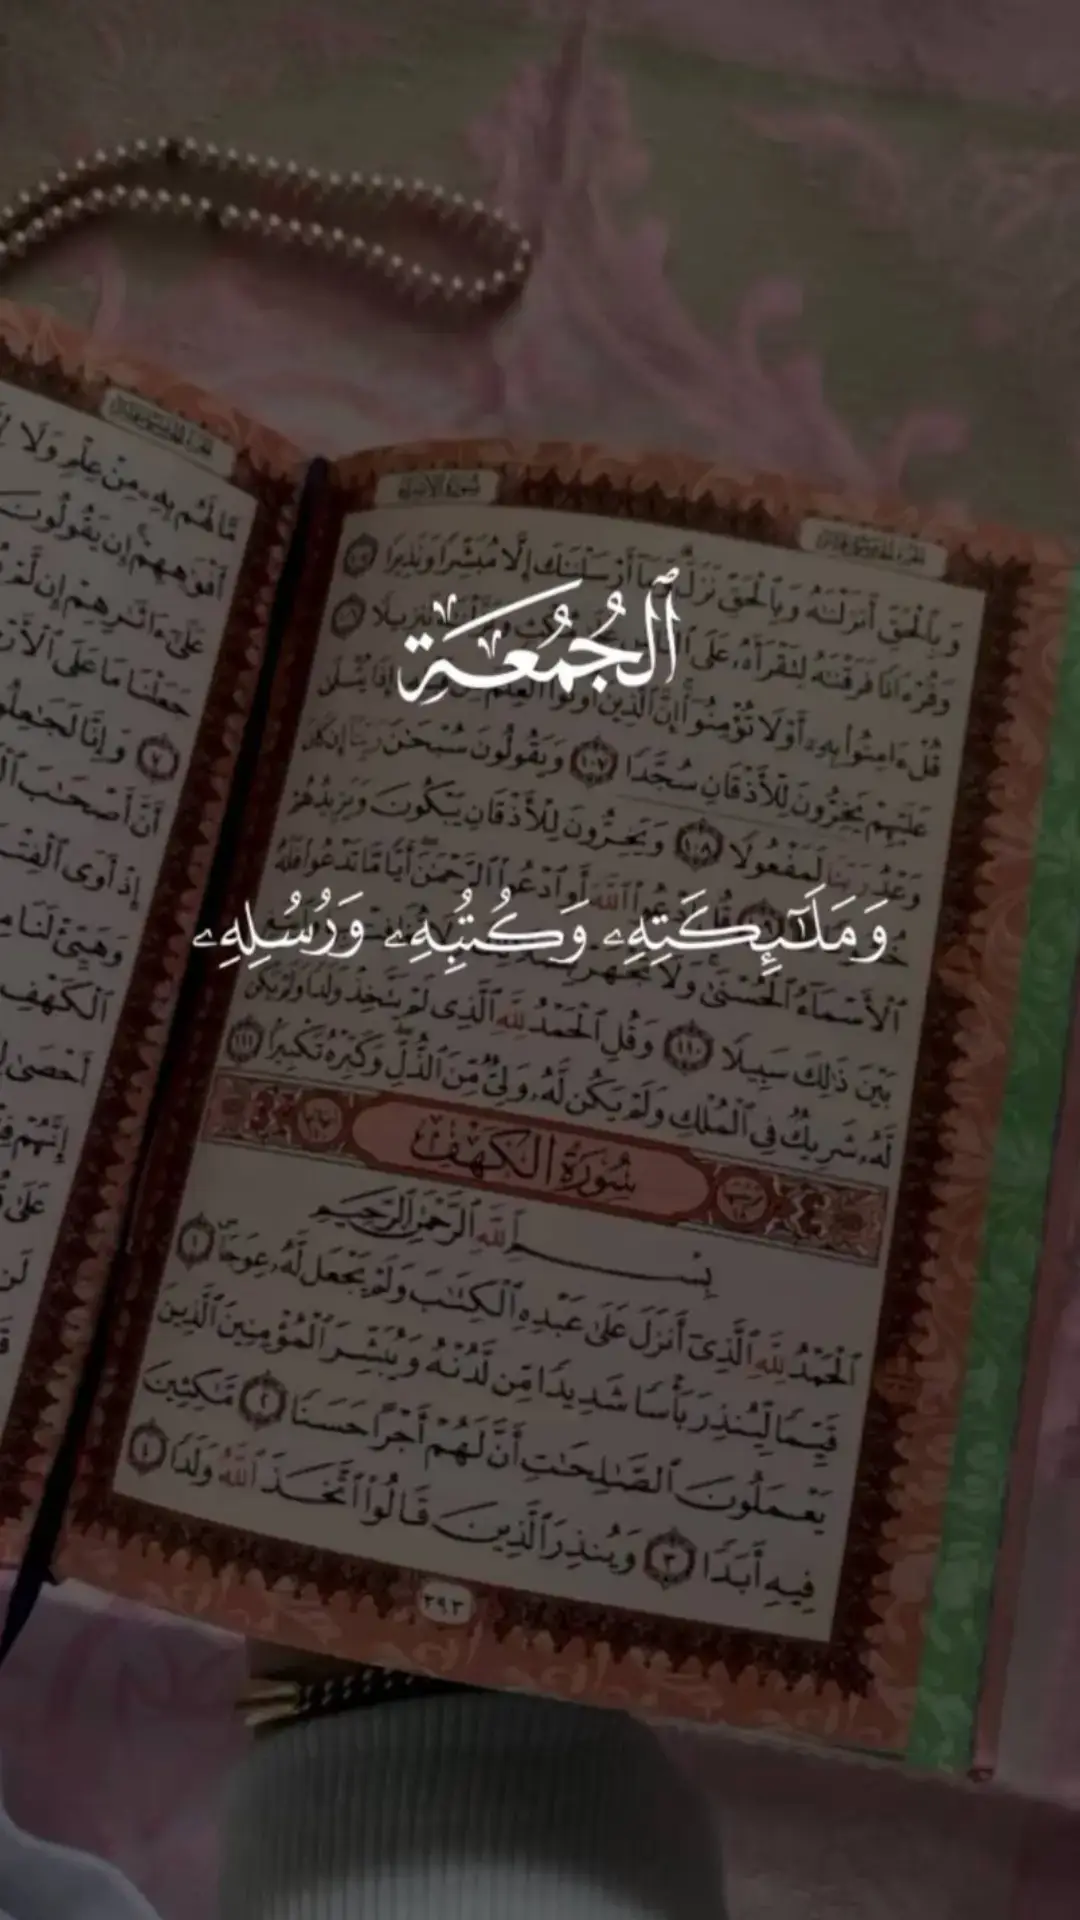 ٱلْجُمُعَة
وَمَلَـٰٓئِكَتِهِۦ وَكُتُبِهِۦ وَرُسُلِهِۦ
سُورَةُ الإِسْرَاء
وَبِٱلْحَقِّ أَنزَلْنَـٰهُ وَبِٱلْحَقِّ نَزَلَ وَمَآ أَرْسَلْنَـٰكَ إِلَّا مُبَشِّرًا وَنَذِيرًا ١٠٥
وَقُرْءَانًا فَرَقْنَـٰهُ لِتَقْرَأَهُۥ عَلَى
قُلْ ءَامِنُوا۟ بِهِۦٓ أَوْ لَا تُؤْمِنُوٓا۟ إِنَّ ٱلَّذِينَ أُوتُوا۟ ٱلْعِلْمَ إِذَا يُتْلَىٰ
عَلَيْهِمْ يَخِرُّونَ لِلْأَذْقَانِ سُجَّدًا ١٠٧ وَيَقُولُونَ سُبْحَـٰنَ رَبِّنَآ إِن كَانَ
وَعْدُ رَبِّنَا لَمَفْعُولًا ١٠٨ وَيَخِرُّونَ لِلْأَذْقَانِ يَبْكُونَ وَيَزِيدُهُمْ
قُلِ ٱدْعُوا۟ ٱللَّهَ أَوِ ٱدْعُوا۟ ٱلرَّحْمَـٰنَ أَيًّا مَّا تَدْعُوا۟ فَلَهُ
ٱلْأَسْمَآءُ ٱلْحُسْنَىٰ وَلَا تَجْهَرْ
بَيْنَ ذَٰلِكَ سَبِيلًا ١١٠ وَقُلِ ٱلْحَمْدُ لِلَّهِ ٱلَّذِى لَمْ يَتَّخِذْ وَلَدًا وَلَمْ يَكُن
لَّهُۥ شَرِيكٌ فِى ٱلْمُلْكِ وَلَمْ يَكُن لَّهُۥ وَلِىٌّ مِّنَ ٱلذُّلِّ وَكَبِّرْهُ تَكْبِيرًا ١١١
سُورَةُ الكَهْفِ
بِسْمِ ٱللَّهِ ٱلرَّحْمَـٰنِ ٱلرَّحِيمِ
ٱلْحَمْدُ لِلَّهِ ٱلَّذِىٓ أَنزَلَ عَلَىٰ عَبْدِهِ ٱلْكِتَـٰبَ وَلَمْ يَجْعَل لَّهُۥ عِوَجَا ١
قَيِّمًا لِّيُنذِرَ بَأْسًا شَدِيدًا مِّن لَّدُنْهُ وَيُبَشِّرَ ٱلْمُؤْمِنِينَ ٱلَّذِينَ
يَعْمَلُونَ ٱلصَّـٰلِحَـٰتِ أَنَّ لَهُمْ أَجْرًا حَسَنًا ٢ مَّـٰكِثِينَ
فِيهِ أَبَدًا ٣ وَيُنذِرَ ٱلَّذِينَ قَالُوا۟ ٱتَّخَذَ ٱللَّهُ وَلَدًا ٤
٢٩٣
مَّا لَهُم بِهِۦ مِنْ عِلْمٍ وَلَا
أَفْوَٰهِهِمْ إِن يَقُولُونَ
عَلَىٰٓ ءَاثَـٰرِهِمْ إِن لَّمْ
جَعَلْنَا مَا عَلَى ٱلْأَرْ
٧ وَإِنَّا لَجَـٰعِلُو
أَنَّ أَصْحَـٰبَ
إِذْ أَوَى ٱلْفِتْيَ
وَهَيِّئْ لَنَا
ٱلْكَهْفِ
أَحْصَىٰ
إِنَّهُمْ
عَلَىٰ
لَن